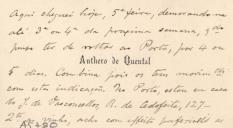 Aqui cheguei hoje, 5ª feira, demorando-me
até 3ª ou 4ª da proxima semana, q do
puns ter de voltar ao Porto, por 4 ou
Anthero de Quental
5 dias. Combina pois os teus movim.tos
com esta indicação. No Porto, estou em casa
do J. de Vasconcellos, R. de Cedofeita, 127-
2º. vinho, acho com effeito